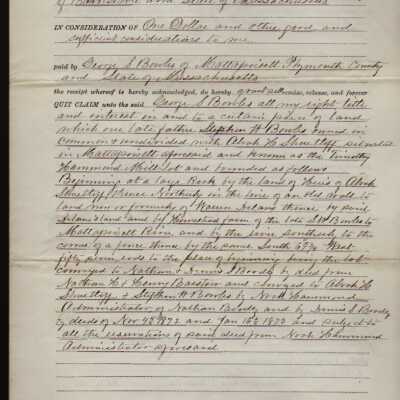 of Barnstable and State of Massachusetts
IN CONSIDERATION OF One Dollar and other good and
sufficient considerations to me
paid by George S Bowles of Mattapoisett Plymouth County
and State of Massachusetts
the receipt whereof is hereby acknowledged, do hereby grant, remise, release, and forever
QUIT CLAIM unto the said George S Bowles all my right title
and interest in and to a certain parcel of land
which our late father Stephen H Bowles owned in
common & undivided with Abner H situated
in Mattapoisett aforesaid and known as the Timothy
Hammond Mill lot and bounded as follows
Beginning at a large Rock by the land of Heirs of Abner
thence Northerly in the line of an old wall to
land now or formerly of thence by said
land and by Homestead farm of the late S H Bowles to
Mattapoisett River, and by the river southerly to the
corner of a fence thence by the same South 67 3/4 West
fifty seven rods to the place of beginning being the lot
conveyed to Nathan & Dennis S Brody by deed from
Nathan H & Henry Barstow and conveyed to Abner H
& Stephen H Bowles by Noah Hammond
Administrator of Nathan Brody and by Dennis S Brody
by deeds of Nov 1872 and Jan 1873 and subject to
all the reservations of said deed from Noah Hammond
Administrator aforesaid